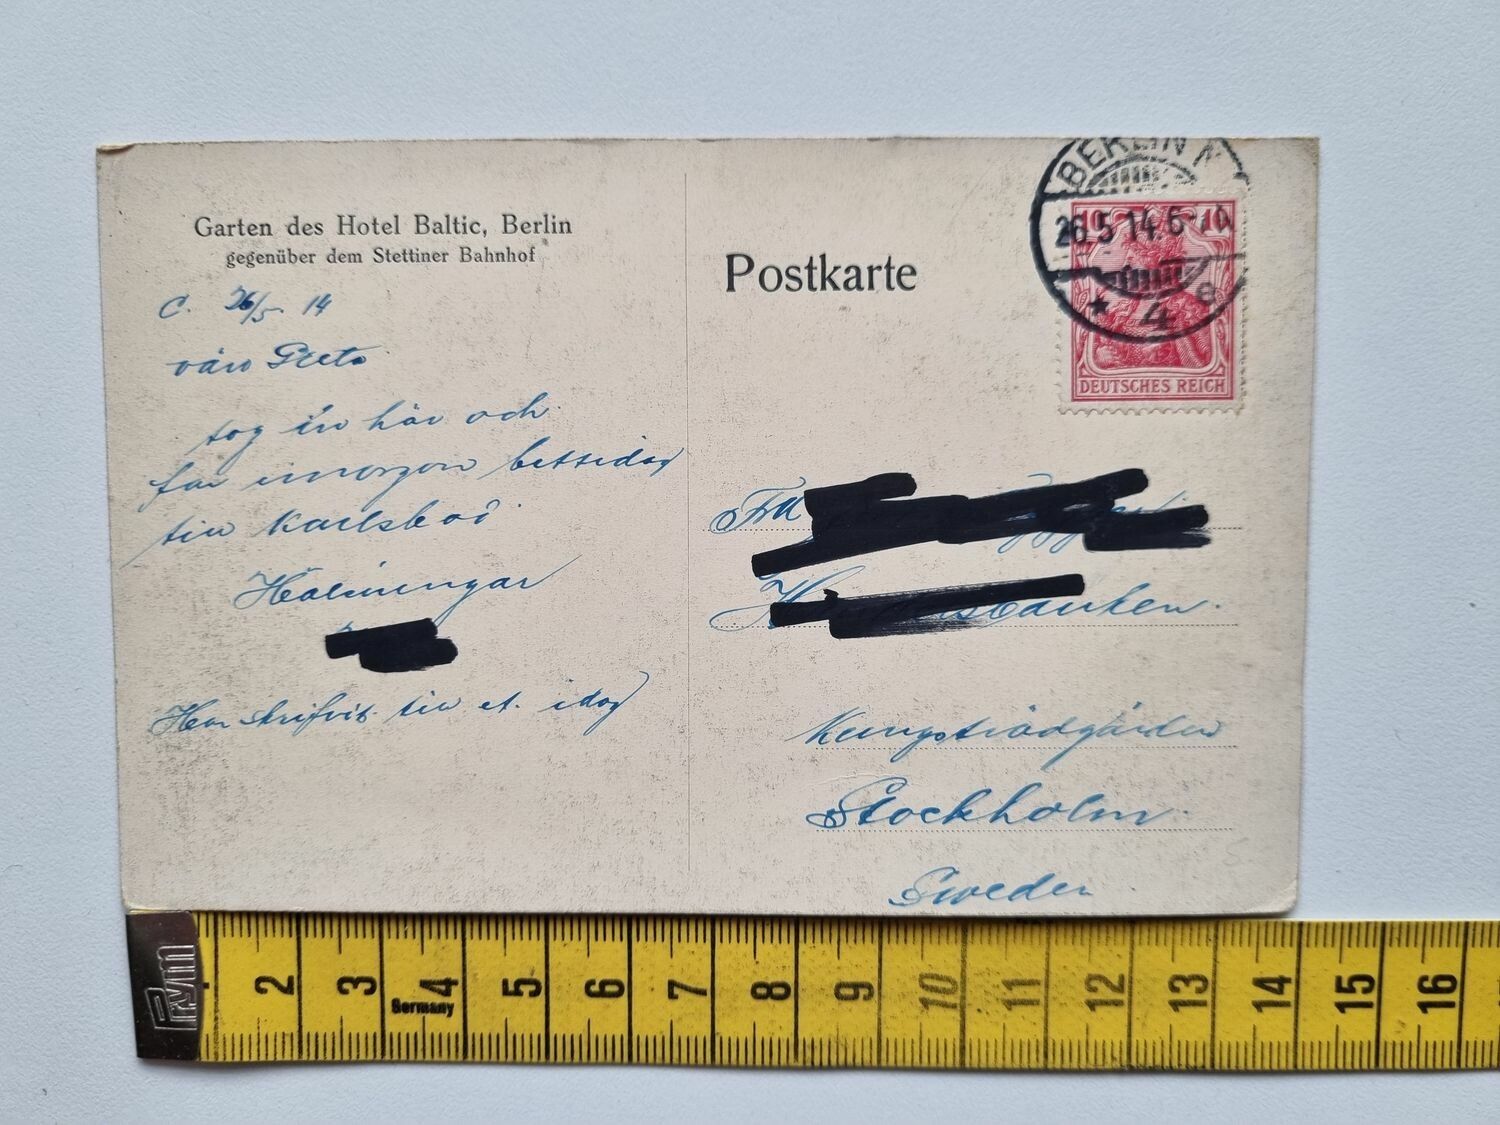 Garten des Hotel Baltic, Berlin
gegenüber dem Stettiner Bahnhof
C. 26/5 14
tog in här och
far imorgon bittidag
till Karlsbad.
Hälsningar
Har skrifvit till et. idag
Postkarte
BERLIN N
26.5.14.6-7N.
* 4 e
10 10
DEUTSCHES REICH
Fru
banken.
Kungsträdgården
Stockholm.
Sweden
Prym
2 3 4 5 6 7 8 9 10 11 12 13 14 15 16
Germany